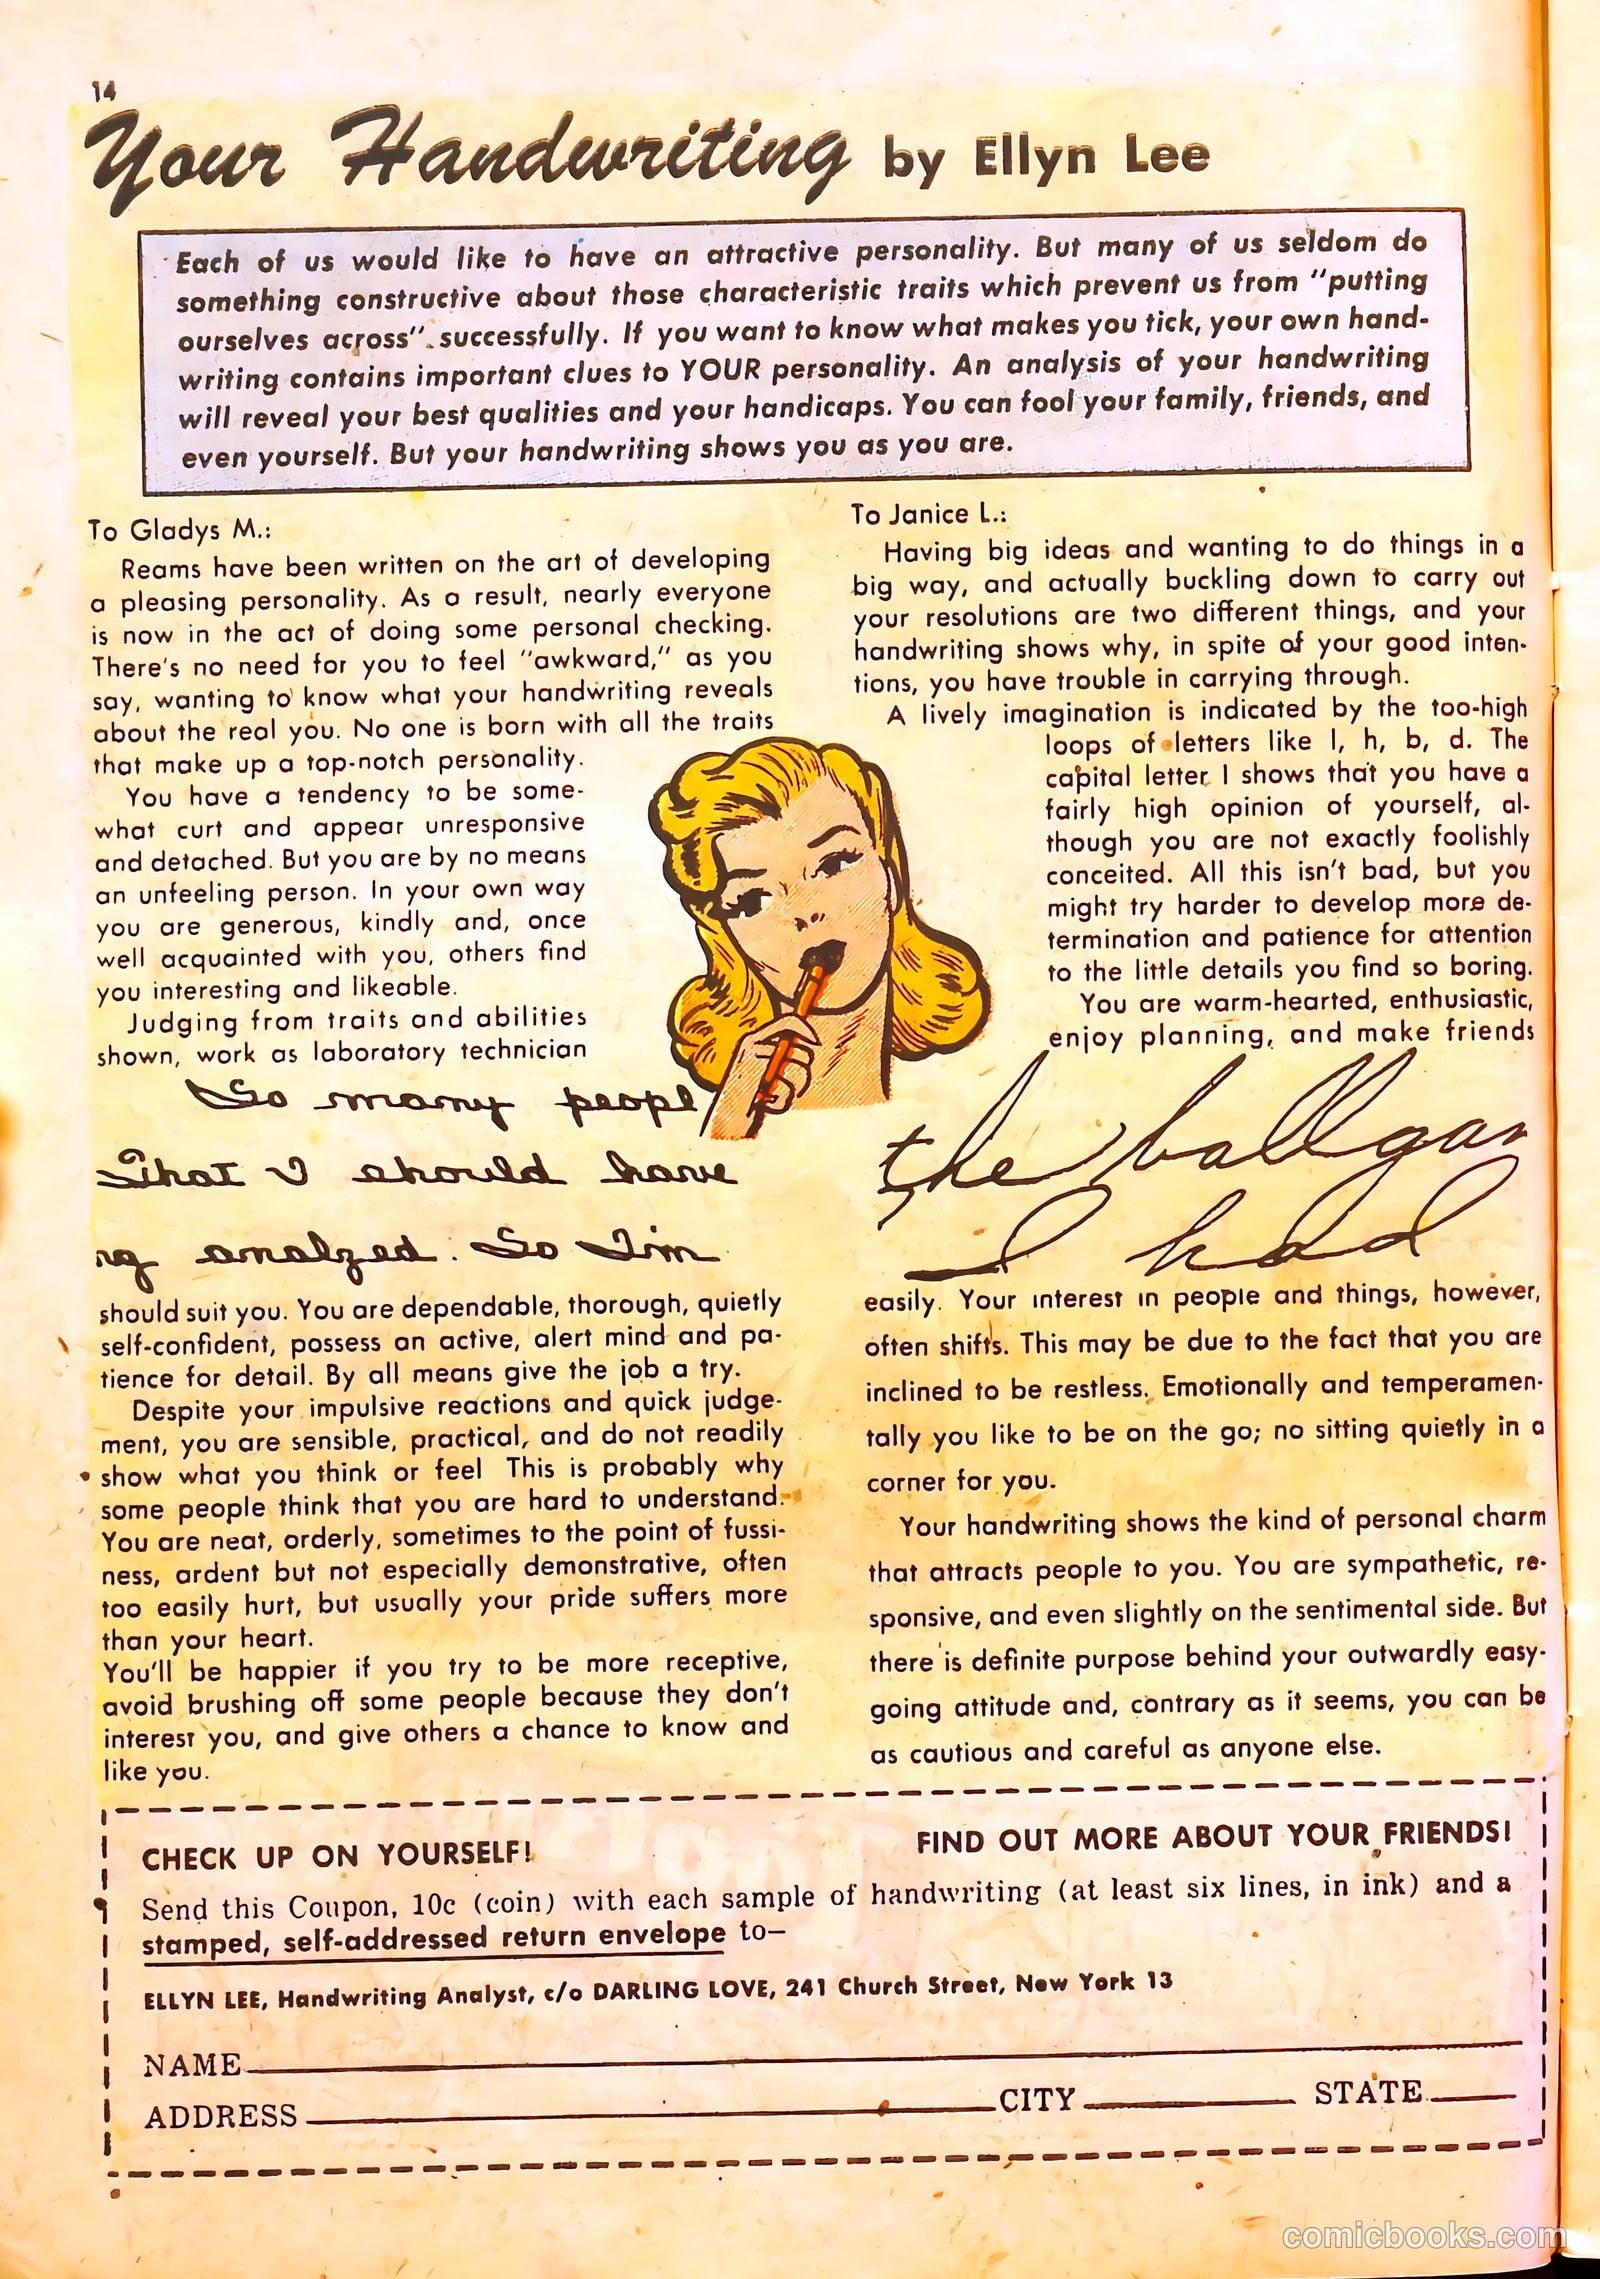 14
Your Handwriting by Ellyn Lee
Each of us would like to have an attractive personality. But many of us seldom do
something constructive about those characteristic traits which prevent us from "putting
ourselves across" successfully. If you want to know what makes you tick, your own hand-
writing contains important clues to YOUR personality. An analysis of your handwriting
will reveal your best qualities and your handicaps. You can fool your family, friends, and
even yourself. But your handwriting shows you as you are.
To Gladys M.:
Reams have been written on the art of developing
a pleasing personality. As a result, nearly everyone
is now in the act of doing some personal checking.
There's no need for you to feel "awkward," as you
say, wanting to know what your handwriting reveals
about the real you. No one is born with all the traits
that make up a top-notch personality.
You have a tendency to be some-
what curt and appear unresponsive
and detached. But you are by no means
an unfeeling person. In your own way
you are generous, kindly and, once
well acquainted with you, others find
you interesting and likeable.
Judging from traits and abilities
shown, work as laboratory technician
So many peopl
That I should have
ng analzed. So I'm
should suit you. You are dependable, thorough, quietly
self-confident, possess an active, alert mind and pa-
tience for detail. By all means give the job a try.
Despite your impulsive reactions and quick judge-
ment, you are sensible, practical, and do not readily
show what you think or feel This is probably why
some people think that you are hard to understand.
You are neat, orderly, sometimes to the point of fussi-
ness, ardent but not especially demonstrative, often
too easily hurt, but usually your pride suffers more
than your heart.
You'll be happier if you try to be more receptive,
avoid brushing off some people because they don't
interest you, and give others a chance to know and
like you.
To Janice L.:
Having big ideas and wanting to do things in a
big way, and actually buckling down to carry out
your resolutions are two different things, and your
handwriting shows why, in spite of your good inten-
tions, you have trouble in carrying through.
A lively imagination is indicated by the too-high
loops of letters like l, h, b, d. The
capital letter I shows that you have a
fairly high opinion of yourself, al-
though you are not exactly foolishly
conceited. All this isn't bad, but you
might try harder to develop more de-
termination and patience for attention
to the little details you find so boring.
You are warm-hearted, enthusiastic,
enjoy planning, and make friends
the ballgam
I had
easily. Your interest in people and things, however,
often shifts. This may be due to the fact that you are
inclined to be restless. Emotionally and temperamen-
tally you like to be on the go; no sitting quietly in a
corner for you.
Your handwriting shows the kind of personal charm
that attracts people to you. You are sympathetic, re-
sponsive, and even slightly on the sentimental side. But
there is definite purpose behind your outwardly easy-
going attitude and, contrary as it seems, you can be
as cautious and careful as anyone else.
CHECK UP ON YOURSELF! FIND OUT MORE ABOUT YOUR FRIENDS!
Send this Coupon, 10c (coin) with each sample of handwriting (at least six lines, in ink) and a
stamped, self-addressed return envelope to—
ELLYN LEE, Handwriting Analyst, c/o DARLING LOVE, 241 Church Street, New York 13
NAME
ADDRESS CITY STATE
comicbooks.com